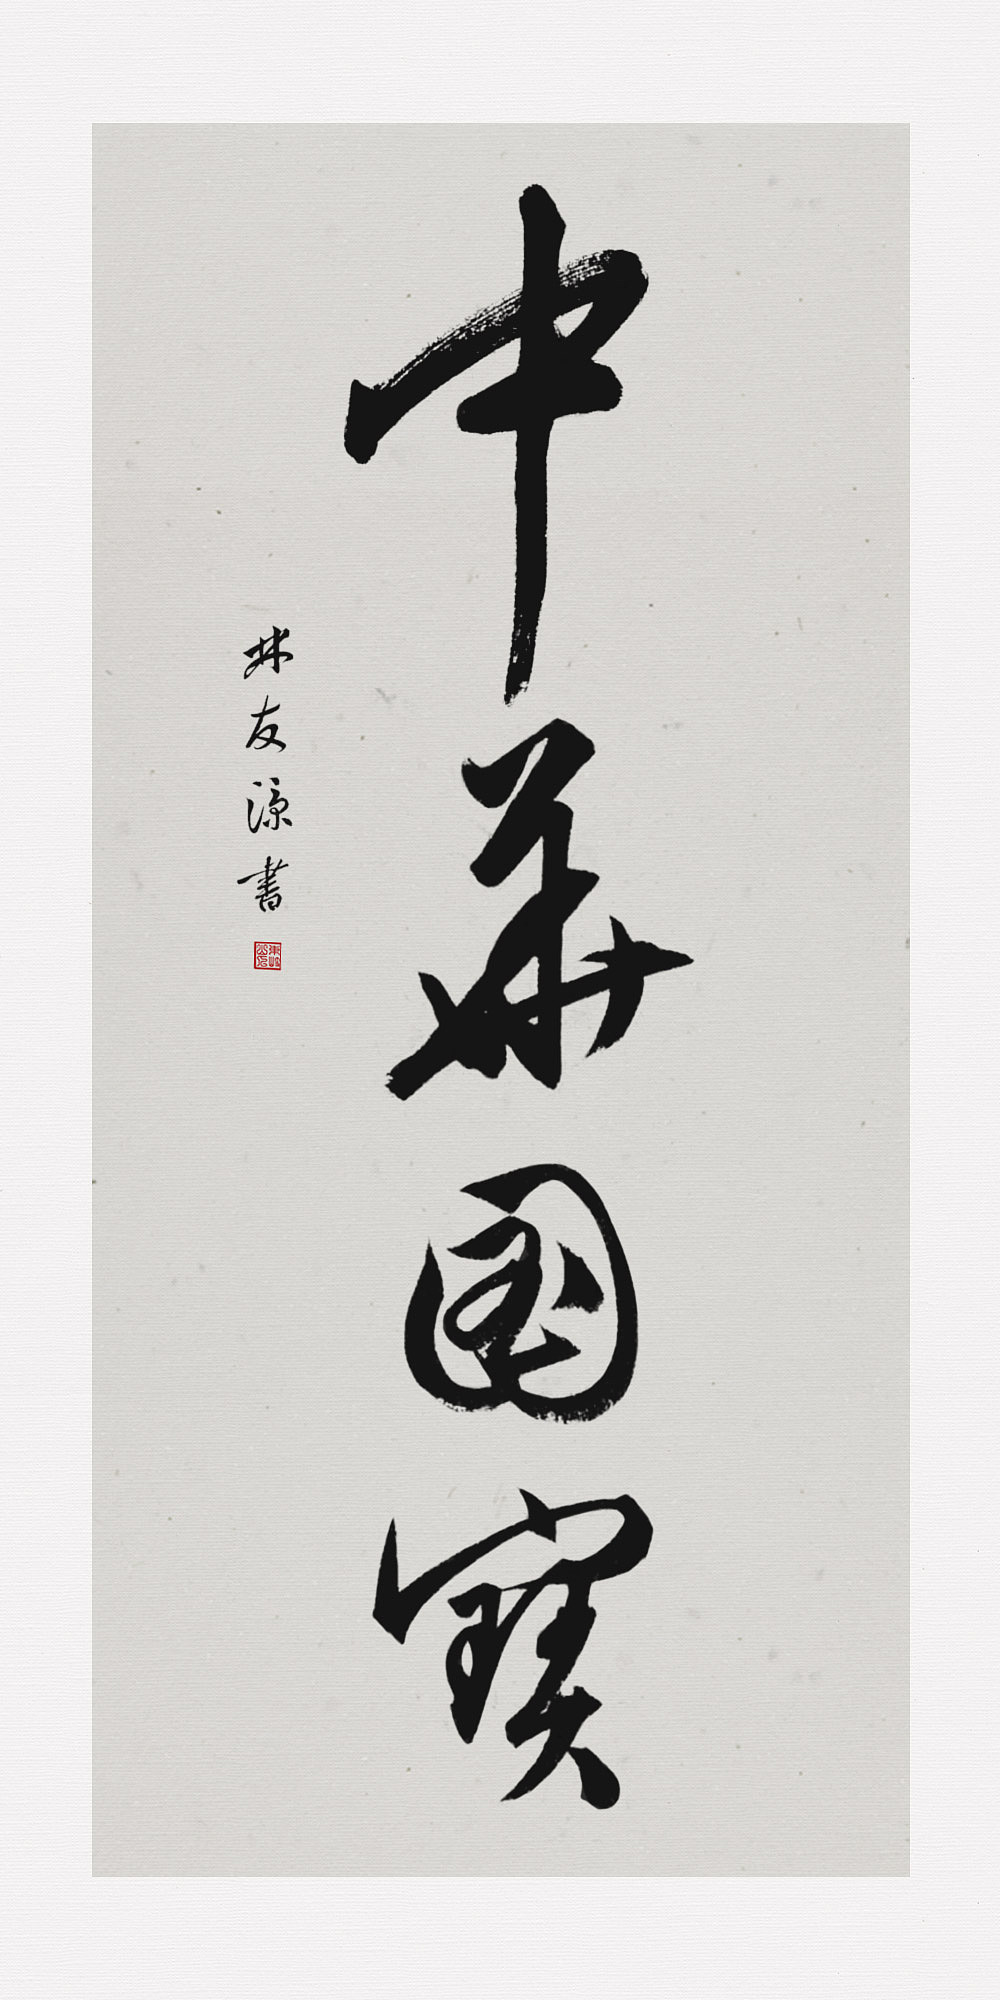 中華国寶
林友源書